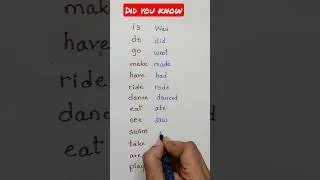 DID YOU KNOW
is was
do did
go went
make made
have had
ride rode
dance danced
eat ate
see saw
swim
take
are
play